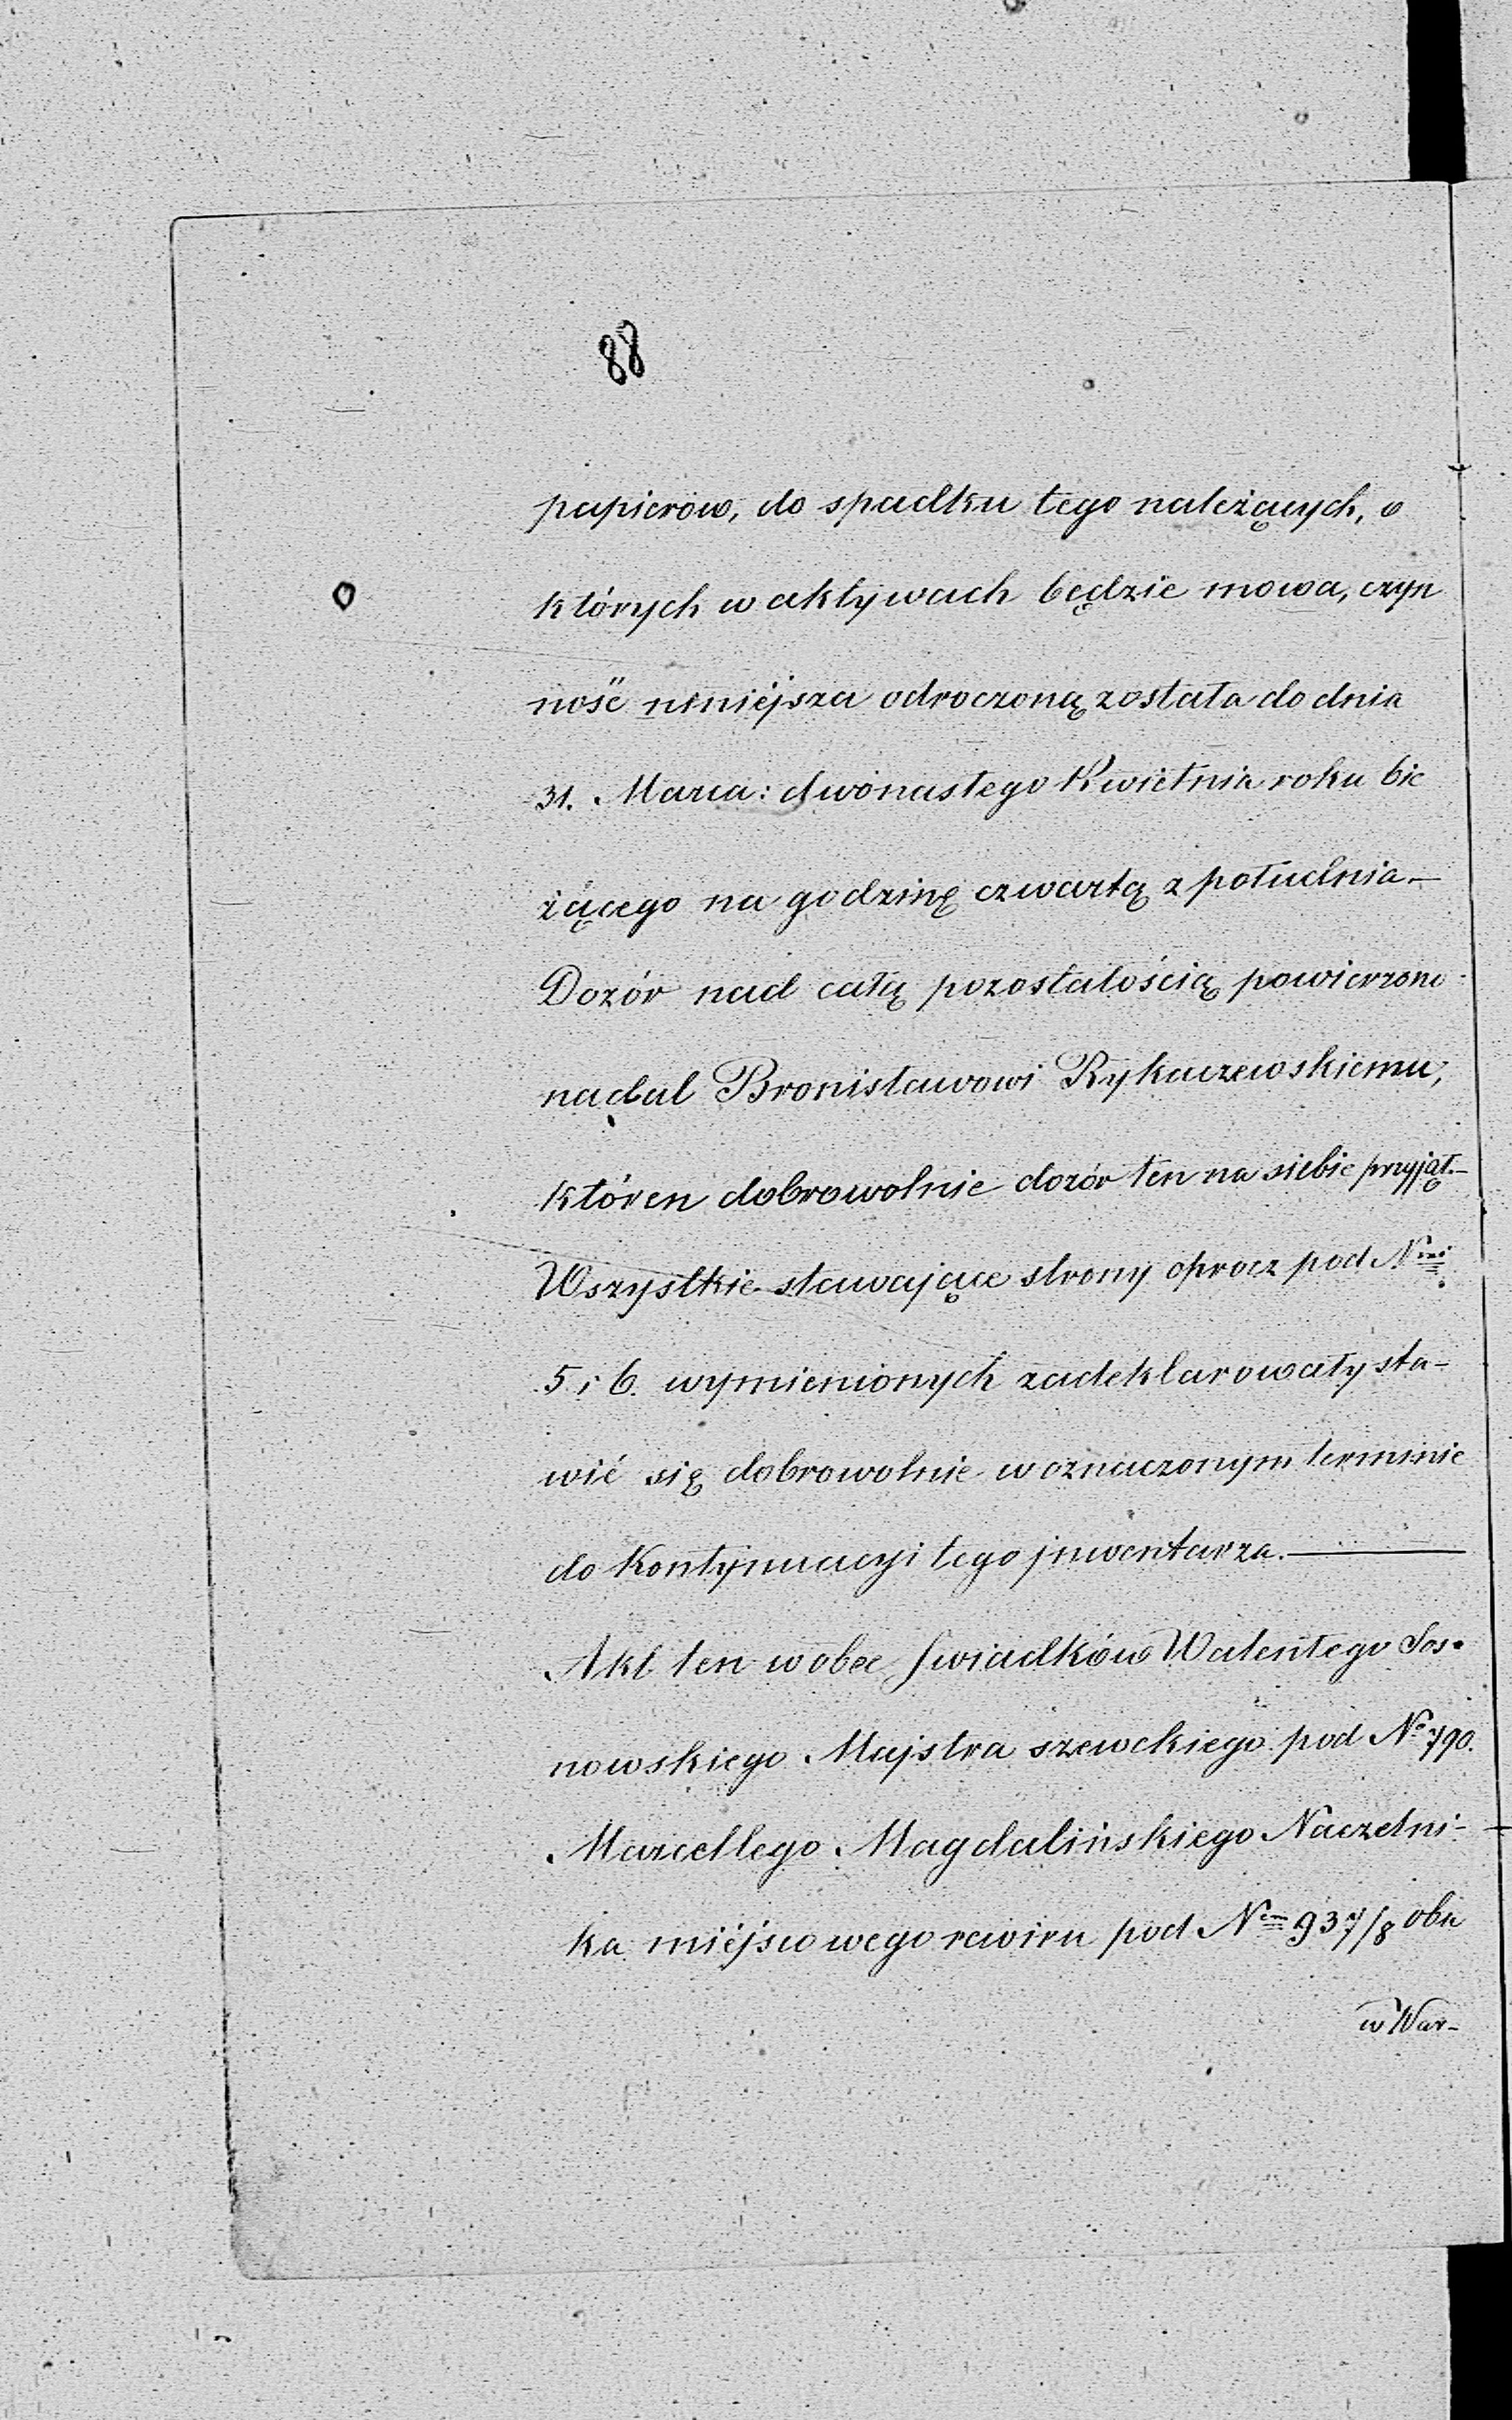 88
papierów, do spadku tego należących, o
których w aktywach będzie mowa, czyn
ność niniéjsza odroczoną została do dnia
31. Marca: dwónastego Kwietnia roku bie
żącego na godzinę czwartą z południa.—
Dozór nad całą pozostałością powierzono
nadal Bronisławowi Rykaczewskiemu,
któren dobrowolnie dozór ten na siebie przyjął.—
Wszystkie stawające strony oprocz pod Nmi
5 i 6. wymienionych zadeklarowały sta-
wić się dobrowolnie w oznaczonym terminie
do Kontynuacyi tego jnwentarza.—
Akt ten wobec Swiadków Walentego Sos-
nowskiego Majstra szewckiego pod No 790.
Marcellego Magdalińskiego Naczelni-
ka miéjscowego rewiru pod Nem 937/8 obu
w War-